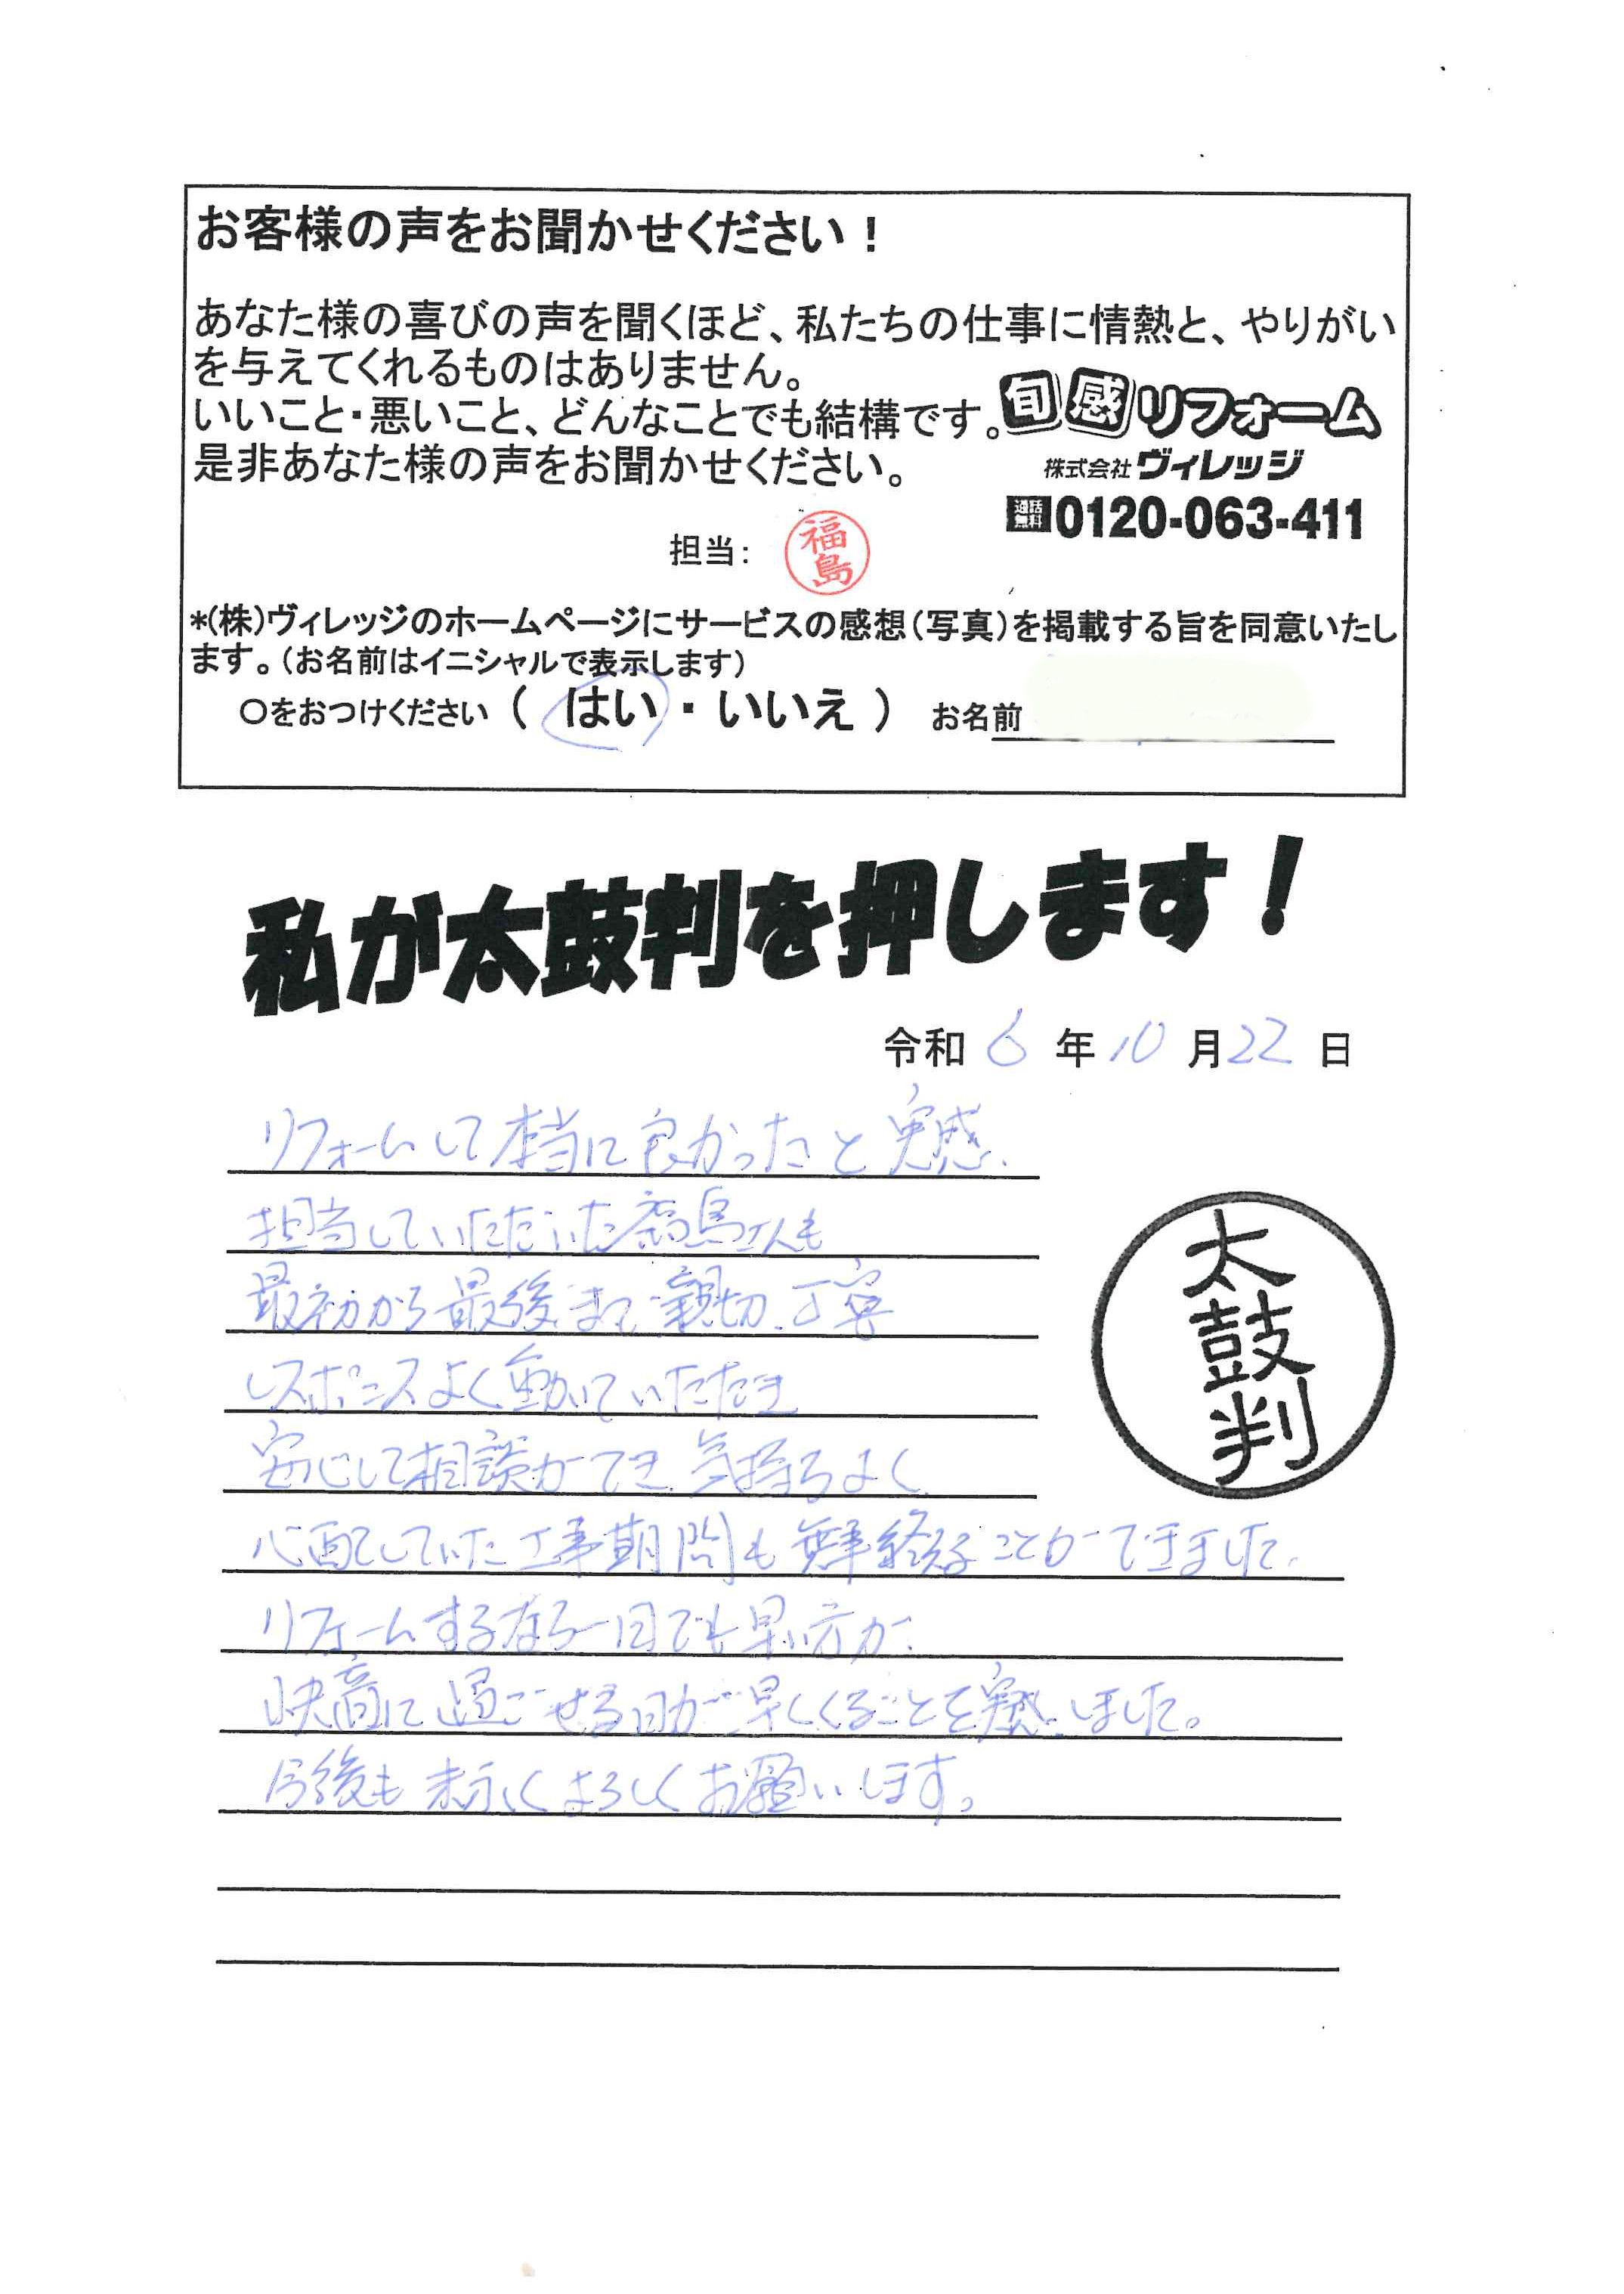 お客様の声をお聞かせください！
あなた様の喜びの声を聞くほど、私たちの仕事に情熱と、やりがい
を与えてくれるものはありません。
いいこと・悪いこと、どんなことでも結構です。
是非あなた様の声をお聞かせください。
旬感リフォーム
株式会社ヴィレッジ
通話無料 0120-063-411
担当：
福島
*(株)ヴィレッジのホームページにサービスの感想（写真）を掲載する旨を同意いたし
ます。（お名前はイニシャルで表示します）
○をおつけください（ はい・いいえ ） お名前
私が太鼓判を押します！
令和 6 年 10 月 22 日
リフォームして本当に良かったと実感.
担当していただいた福島さんも
最初から最後まで親切.丁寧
レスポンスよく動いていただき
安心して相談ができ 気持ちよく
心配していた工事期間も無事終えることができました.
リフォームするなら一日でも早い方が
快適に過ごせる日が早くくることを実感しました。
今後も末永くよろしくお願いします。
太鼓判